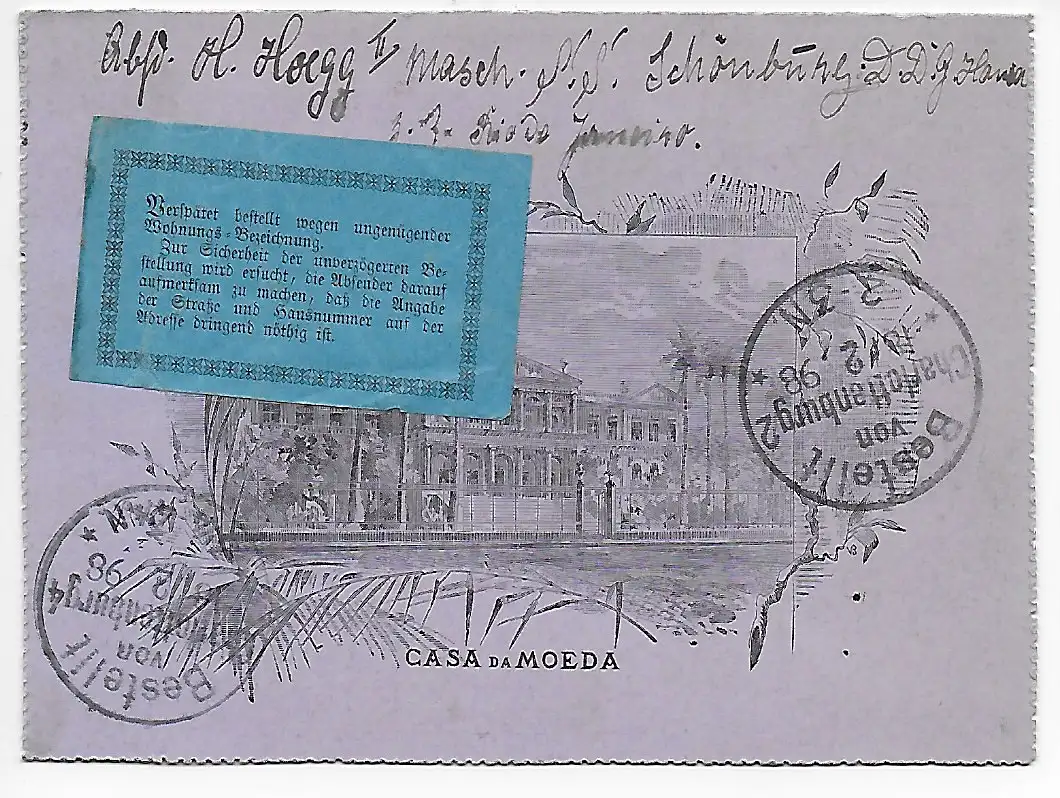 Absd. H. Hoegg II Masch. S.S. Schönburg. D.D.G Hansa
z. Z. Rio de Janeiro.
Verspätet bestellt wegen ungenügender
Wohnungs-Bezeichnung.
Zur Sicherheit der unverzögerten Be-
stellung wird ersucht, die Absender darauf
aufmerksam zu machen, daß die Angabe
der Straße und Hausnummer auf der
Adresse dringend nöthig ist.
Bestellt
von
Charlottenburg 2
2 98
2-3N
CASA DA MOEDA
Bestellt
von
2
98